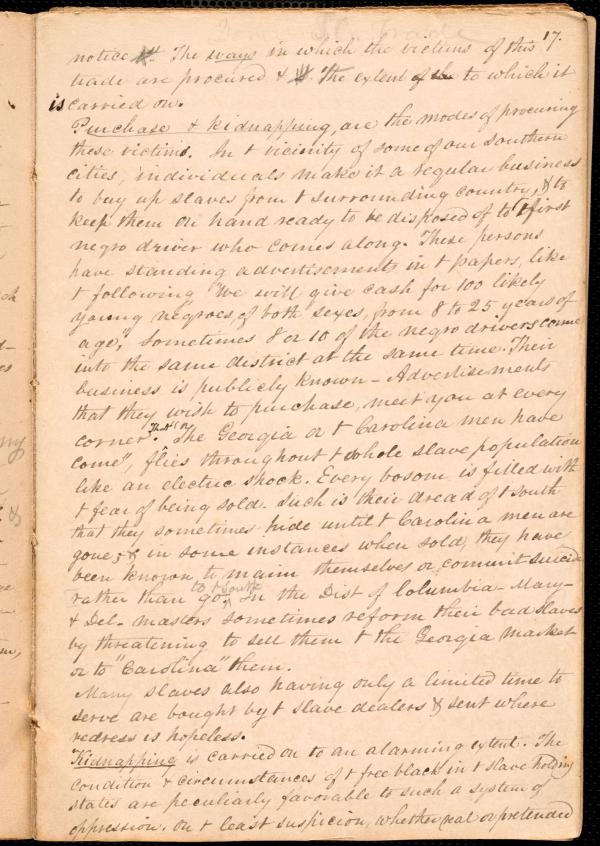 17.
notice 1st The ways in which the victims of this
trade are procured & The extent to which it
is carried on.
Purchase & kidnapping, are the modes of procuring
these victims. In t vicinity of some of our southern
cities, individuals make it a regular business
to buy up slaves from t surrounding country, & to
keep them on hand ready to be disposed of to t first
negro driver who comes along. These persons
have standing advertisements in t papers, like
t following "We will give cash for 100 likely
young negroes, of both sexes, from 8 to 25 years of
age," Sometimes 8 or 10 of the negro drivers come
into the same district at the same time. Their
business is publicly known - Advertisements
that they wish to purchase, meet you at every
corner. The cry "The Georgia or t Carolina men have
come", flies throughout t whole slave population
like an electric shock. Every bosom is filled with
t fear of being sold. Such is their dread of t south
that they sometimes hide until t Carolina men are
gone, & in some instances when sold, they have
been known to maim themselves or commit suicide
rather than go to t south. In the Dist of Columbia - Mary-
& Del- masters sometimes reform their bad slaves
by threatening to sell them t the Georgia market
or to "Carolina" them.
Many slaves also having only a limited time to
serve are bought by t slave dealers & sent where
redress is hopeless.
Kidnapping is carried on to an alarming extent. The
condition & circumstances of t free black in t slave holding
states are peculiarly favorable to such a system of
oppression. On t least suspicion, whether real or pretended